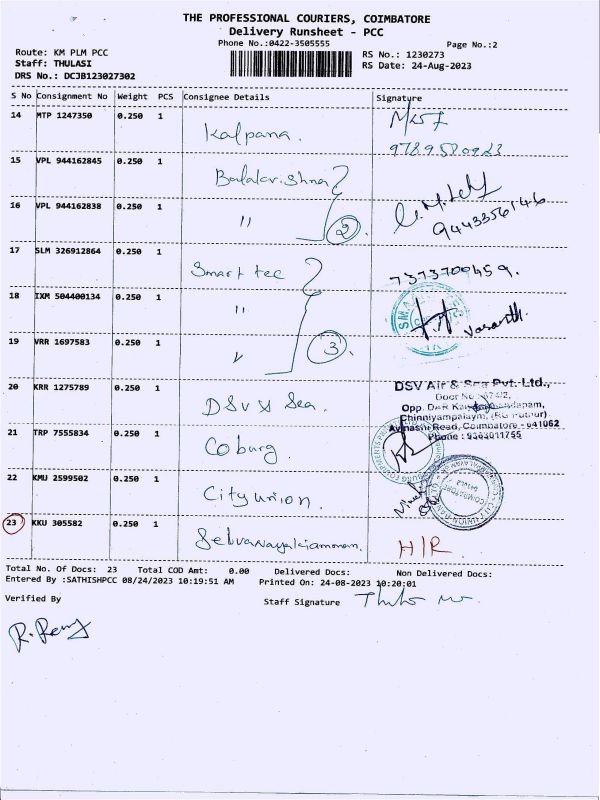 THE PROFESSIONAL COURIERS, COIMBATORE
Delivery Runsheet - PCC
Phone No.:0422-3505555
Page No.:2
Route: KM PLM PCC
Staff: THULASI
DRS No.: DCJB123027302
RS No.: 1230273
RS Date: 24-Aug-2023
S No Consignment No Weight PCS Consignee Details Signature
14 MTP 1247350 0.250 1 Kalpana.
15 VPL 944162845 0.250 1 Balakrishna
16 VPL 944162838 0.250 1 " 2
9443356146
17 SLM 326912864 0.250 1 Smart tec
7373700459.
18 IXM 504400134 0.250 1 "
19 VRR 1697583 0.250 1 " 3.
20 KRR 1275789 0.250 1 DSV & Sea.
DSV Air & Sea Pvt. Ltd.,
Chinniyampalayam,
Avinashi Road, Coimbatore - 641062
Phone : 9363011755
21 TRP 7555834 0.250 1 Coburg.
22 KMU 2599502 0.250 1 City union.
23 KKU 305582 0.250 1 Selvanayakiamman. H/R
Total No. Of Docs: 23 Total COD Amt: 0.00 Delivered Docs: Non Delivered Docs:
Entered By :SATHISHPCC 08/24/2023 10:19:51 AM Printed On: 24-08-2023 10:20:01
Verified By Staff Signature